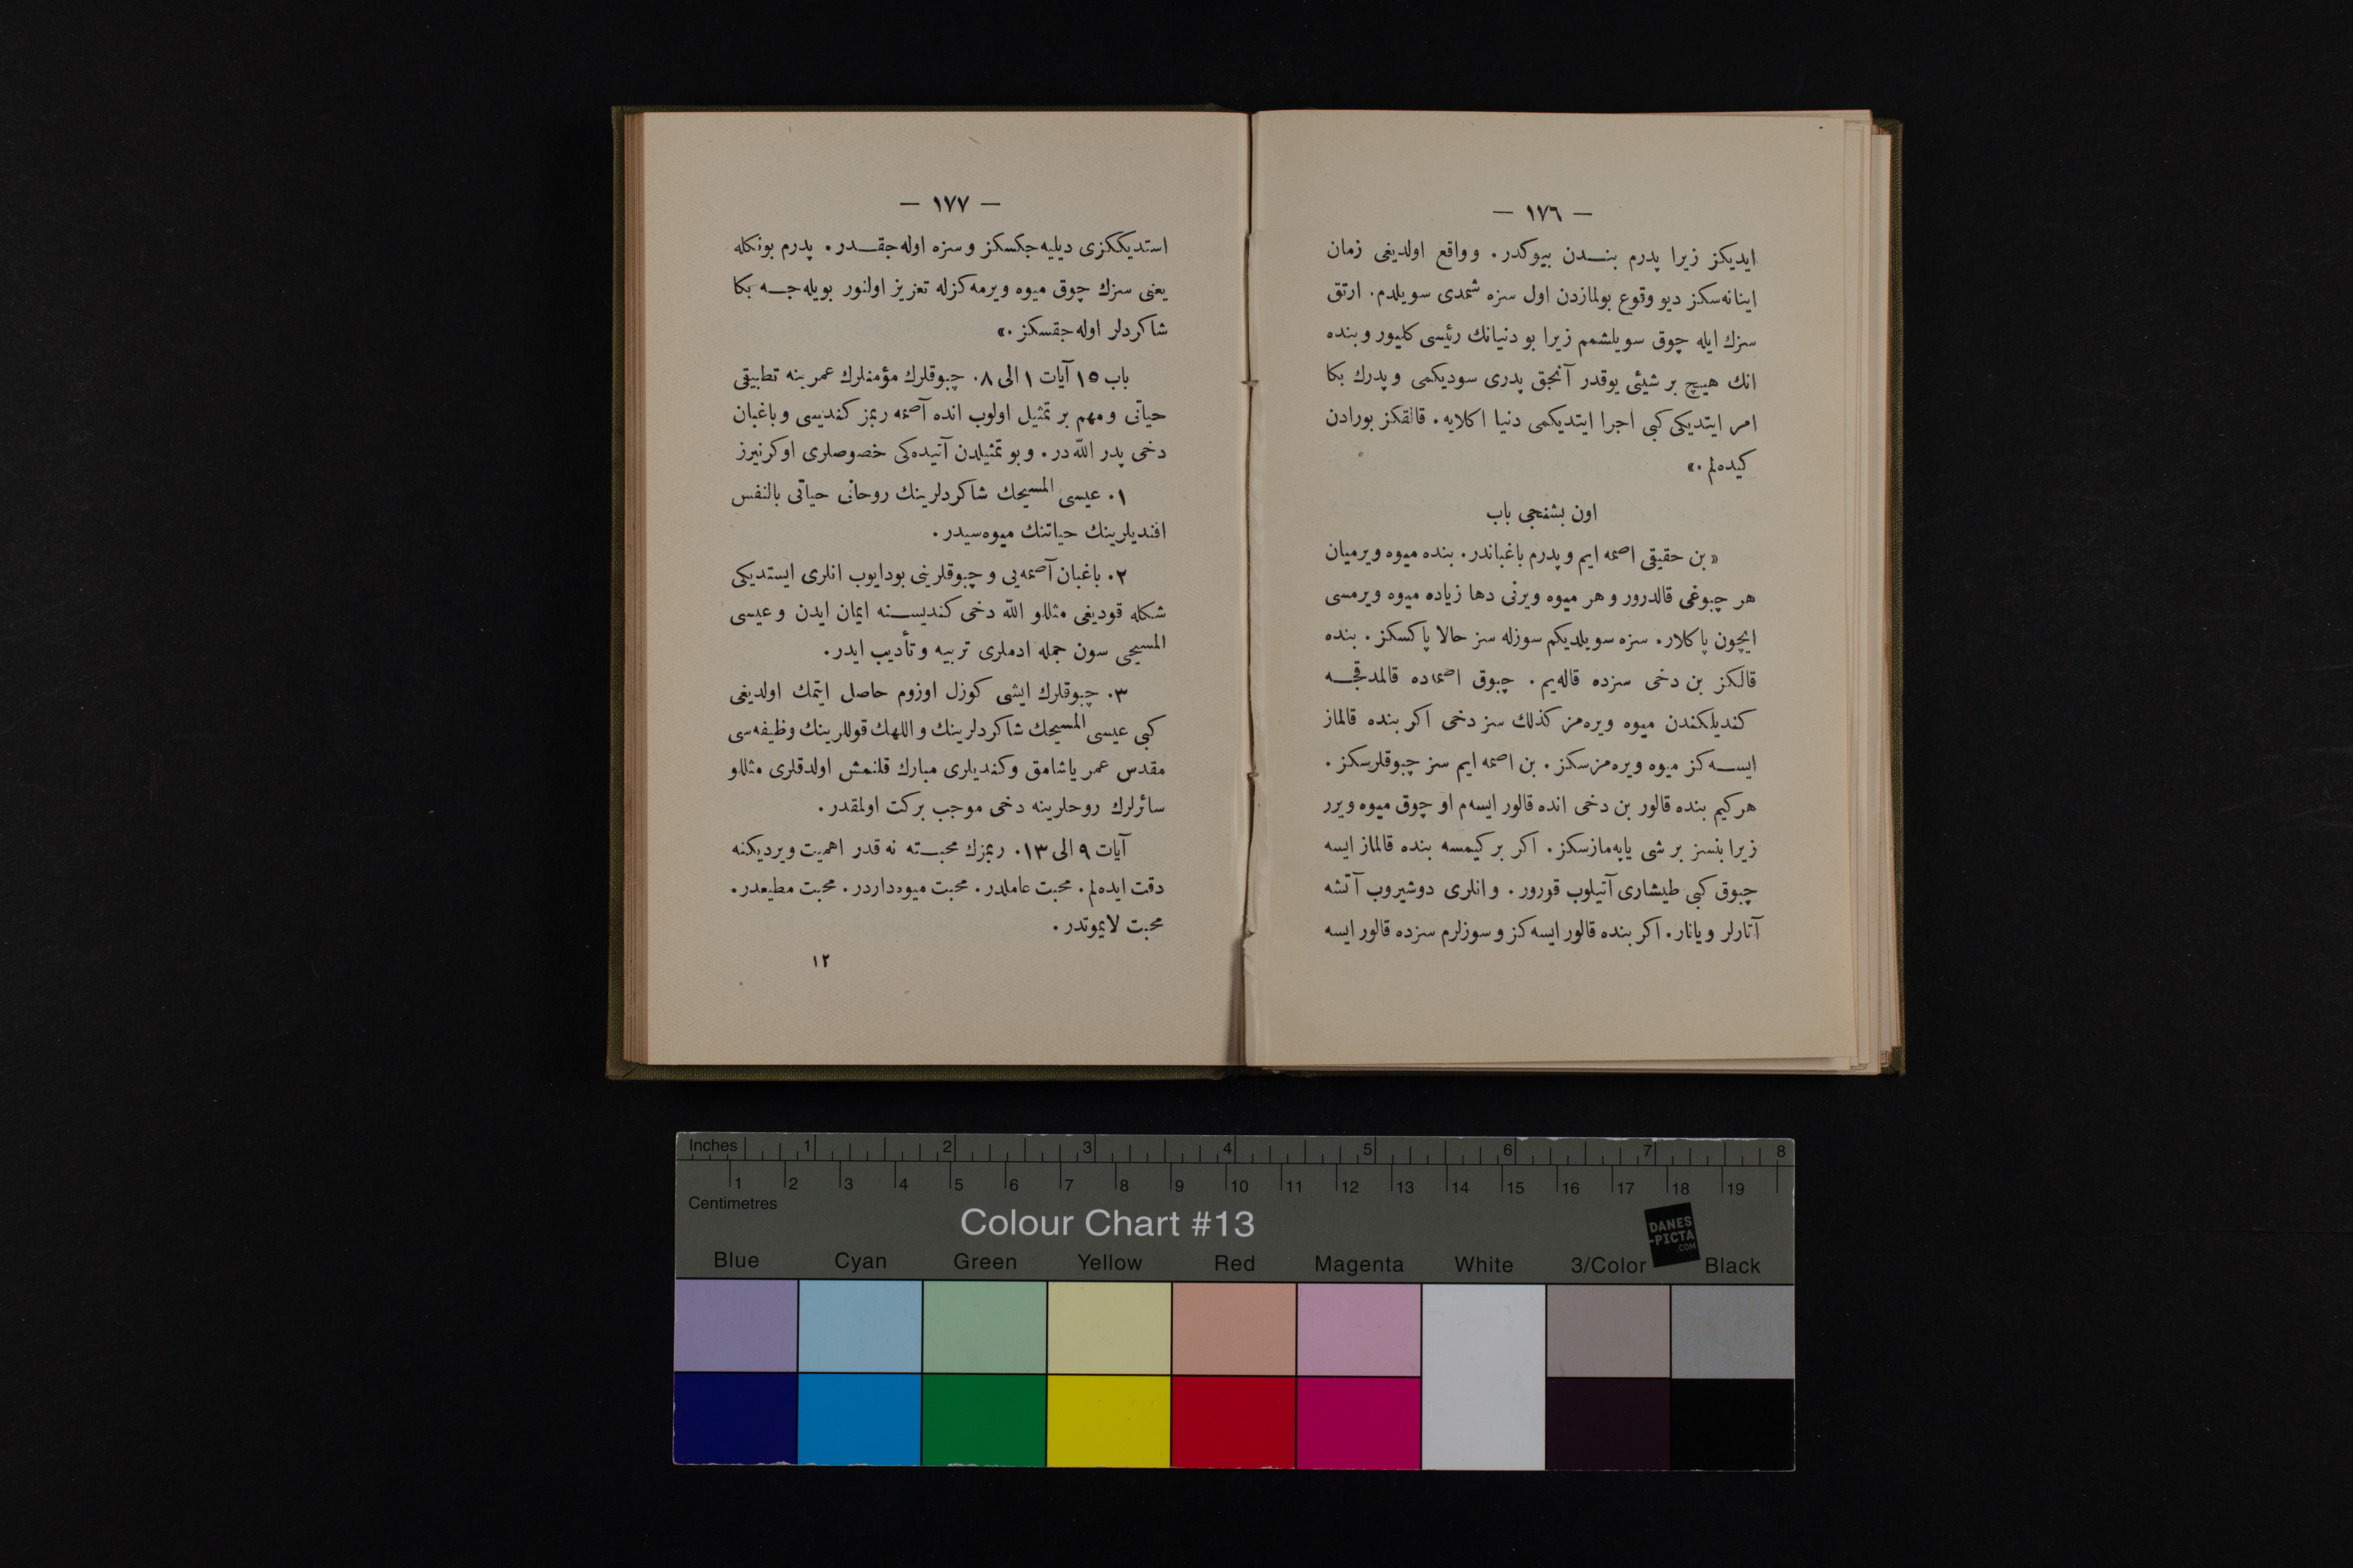 — ١٧٦ —
ايديكز زيرا پدرم بنـــدن بيوكدر. وواقع اولديغى زمان
اينانه‌سكز ديو وقوع بولمازدن اول سزه شمدى سويلدم. ارتق
سزك ايله چوق سويلشمم زيرا بو دنيانك رئيسى كليور وبنده
انك هيچ بر شيئى يوقدر آنجق پدرى سوديكمى وپدرك بكا
امر ايتديكى كبى اجرا ايتديكمى دنيا اكلايه. قالقكز بورادن
كيده‌لم.»
اون بشنجى باب
«بن حقيقى اصمه ايم وپدرم باغباندر. بنده ميوه ويرميان
هر چبوغى قالدرور وهر ميوه ويرنى دها زياده ميوه ويرمسى
ايچون پاكلار. سزه سويلديكم سوزله سز حالا پاكسكز. بنده
قالكز بن دخى سزده قاله‌يم. چبوق اصماده قالمدقجـــه
كنديلكندن ميوه ويره‌مز كذلك سز دخى اكر بنده قالماز
ايســـه‌كز ميوه ويره‌مزسكز. بن اصمه ايم سز چبوقلرسكز.
هركيم بنده قالور بن دخى انده قالور ايسه‌م او چوق ميوه ويرر
زيرا بنسز بر شى ياپه‌مازسكز. اكر بر كيمسه بنده قالماز ايسه
چبوق كبى طيشارى آتيلوب قورور. وانلرى دوشيروب آتشه
آتارلر ويانار. اكر بنده قالور ايسه‌كز وسوزلرم سزده قالور ايسه
— ١٧٧ —
استديككزى ديليه‌جكسكز وسزه اوله‌جقـــدر. پدرم بونكله
يعنى سزك چوق ميوه ويرمه‌كزله تعزيز اولنور بويله‌جـــه بكا
شاكردلر اوله‌جقسكز.»
باب ١٥ آيات ١ الى ٨. چبوقلرك مؤمنلرك عمرينه تطبيقى
حياتى ومهم بر تمثيل اولوب انده آصمه ربمز كنديسى وباغبان
دخى پدر اللّه در. وبو تمثيلدن آتيده‌كى خصوصلرى اوكرنيرز
١. عيسى المسيحك شاكردلرينك روحانى حياتى بالنفس
افنديلرينك حياتنك ميوه‌سيدر.
٢. باغبان آصمه‌يى وچبوقلرينى بودايوب انلرى ايستديكى
شكله قوديغى مثللو اللّه دخى كنديســـنه ايمان ايدن وعيسى
المسيحى سون جمله ادملرى تربيه وتأديب ايدر.
٣. چبوقلرك ايشى كوزل اوزوم حاصل ايتمك اولديغى
كبى عيسى المسيحك شاكردلرينك واللهك قوللرينك وظيفه‌سى
مقدس عمر ياشامق وكنديلرى مبارك قلنمش اولدقلرى مثللو
سائرلرك روحلرينه دخى موجب بركت اولمقدر.
آيات ٩ الى ١٣. ربمزك محبـــته نه قدر اهميت ويرديكنه
دقت ايده‌لم. محبت عاملدر. محبت ميوه‌داردر. محبت مطيعدر.
محبت لايموتدر.
١٢
Inches 1 2 3 4 5 6 7 8
1 2 3 4 5 6 7 8 9 10 11 12 13 14 15 16 17 18 19
Centimetres
Colour Chart #13
DANES
-PICTA
.COM
Blue Cyan Green Yellow Red Magenta White 3/Color Black